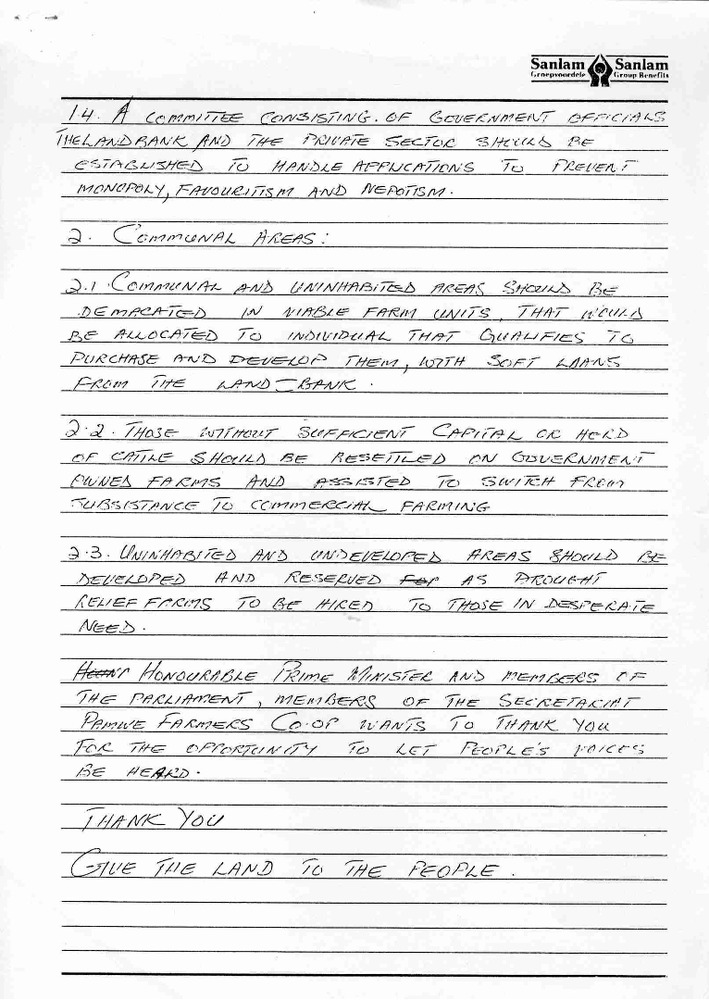 Sanlam Sanlam
Groepvoordele Group Benefits
1.4. A COMMITTEE CONSISTING. OF GOVERNMENT OFFICIALS
THE LANDBANK AND THE PRIVATE SECTOR SHOULD BE
ESTABLISHED TO HANDLE APPLICATIONS TO PREVENT
MONOPOLY, FAVOURITISM AND NEPOTISM.
2. COMMUNAL AREAS:
2.1 COMMUNAL AND UNINHABITED AREAS SHOULD BE
DEMACATED IN VIABLE FARM UNITS, THAT WOULD
BE ALLOCATED TO INDIVIDUAL THAT QUALIFIES TO
PURCHASE AND DEVELOP THEM, WITH SOFT LAANS
FROM THE LAND-BANK.
2.2. THOSE WITHOUT SUFFICIENT CAPITAL OR HERD
OF CATTLE SHOULD BE RESETTLED ON GOVERNMENT
OWNED FARMS AND ASSISTED TO SWITCH FROM
SUBSISTANCE TO COMMERCIAL FARMING
2.3. UNINHABITED AND UNDEVELOPED AREAS SHOULD BE
DEVELOPED AND RESERVED FOR AS DROUGHT
RELIEF FARMS TO BE HIRED TO THOSE IN DESPERATE
NEED.
HONOURABLE PRIME MINISTER AND MEMBERS OF
THE PARLIAMENT, MEMBERS OF THE SECRETARIAT
PAMWE FARMERS CO-OP WANTS TO THANK YOU
FOR THE OPPORTUNITY TO LET PEOPLE'S VOICES
BE HEARD.
THANK YOU
GIVE THE LAND TO THE PEOPLE.